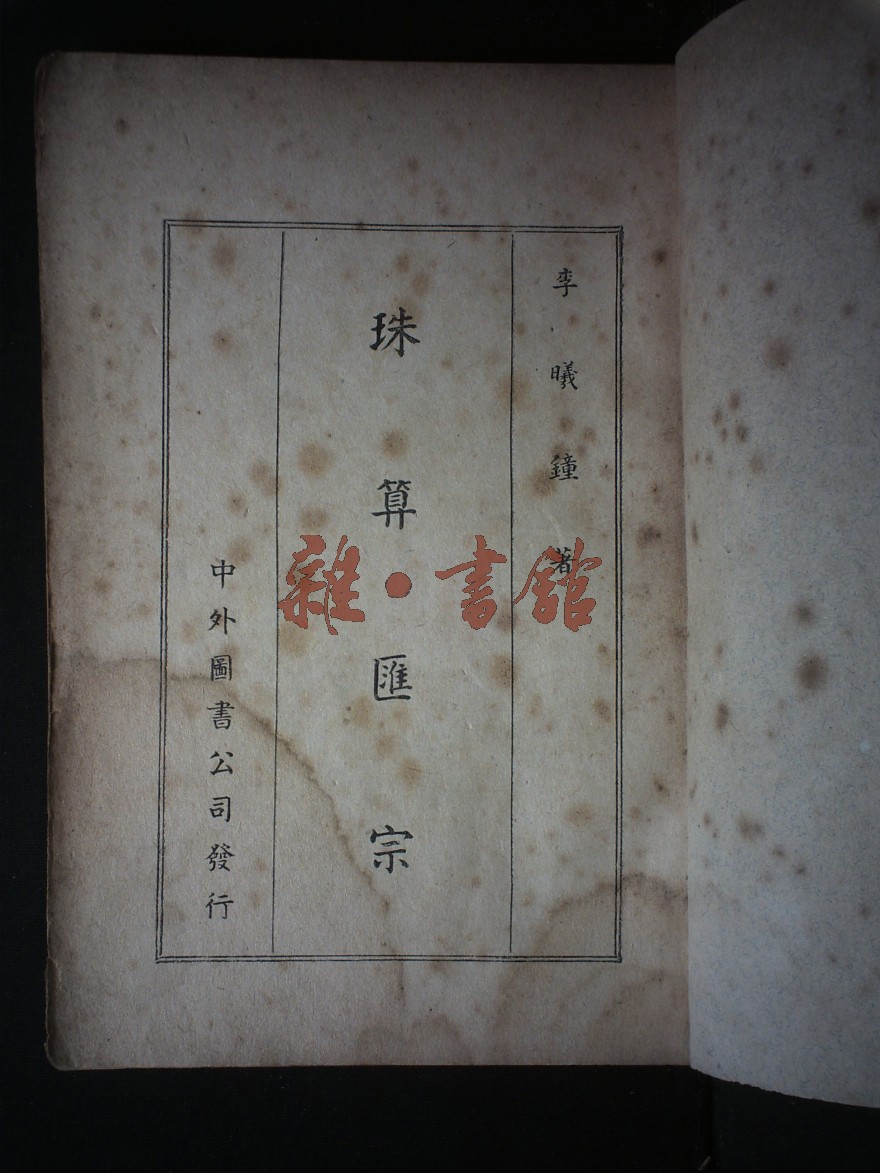 李曦鐘著
珠算匯宗
中外圖書公司發行
雜·書館